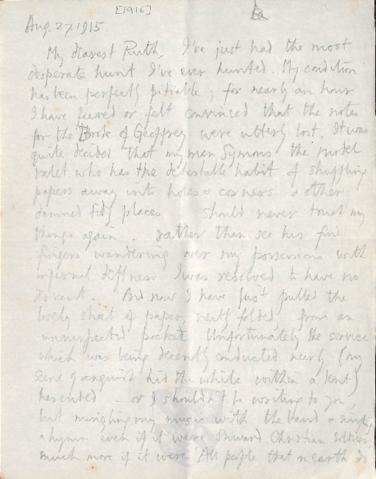 [1916]
Aug. 27 1915
My dearest Ruth, I've just had the most
desperate hunt I've ever hunted. My condition
has been perfectly pitiable; for nearly an hour
I have feared or felt convinced that the notes
for the Book of Geoffrey were utterly lost. It was
quite decided that my man Symons the model
valet who has the detestable habit of shuffling
papers away into holes & corners & other
damned silly places should never touch my
things again. rather than see his five
fingers wandering over my possessions with
infernal deftness I was resolved to have no
servant. And now I have just pulled the
lovely sheet of paper, neatly folded, from an
unsuspected pocket. Unfortunately the service
which was being decently conducted nearby (my
scene of anguish hid the while within a tent)
has ended - or I shouldn't be writing to you
but mingling my music with the band & singing
a hymn even if it were Onward Christian Soldiers
much more if it were All people that on earth do